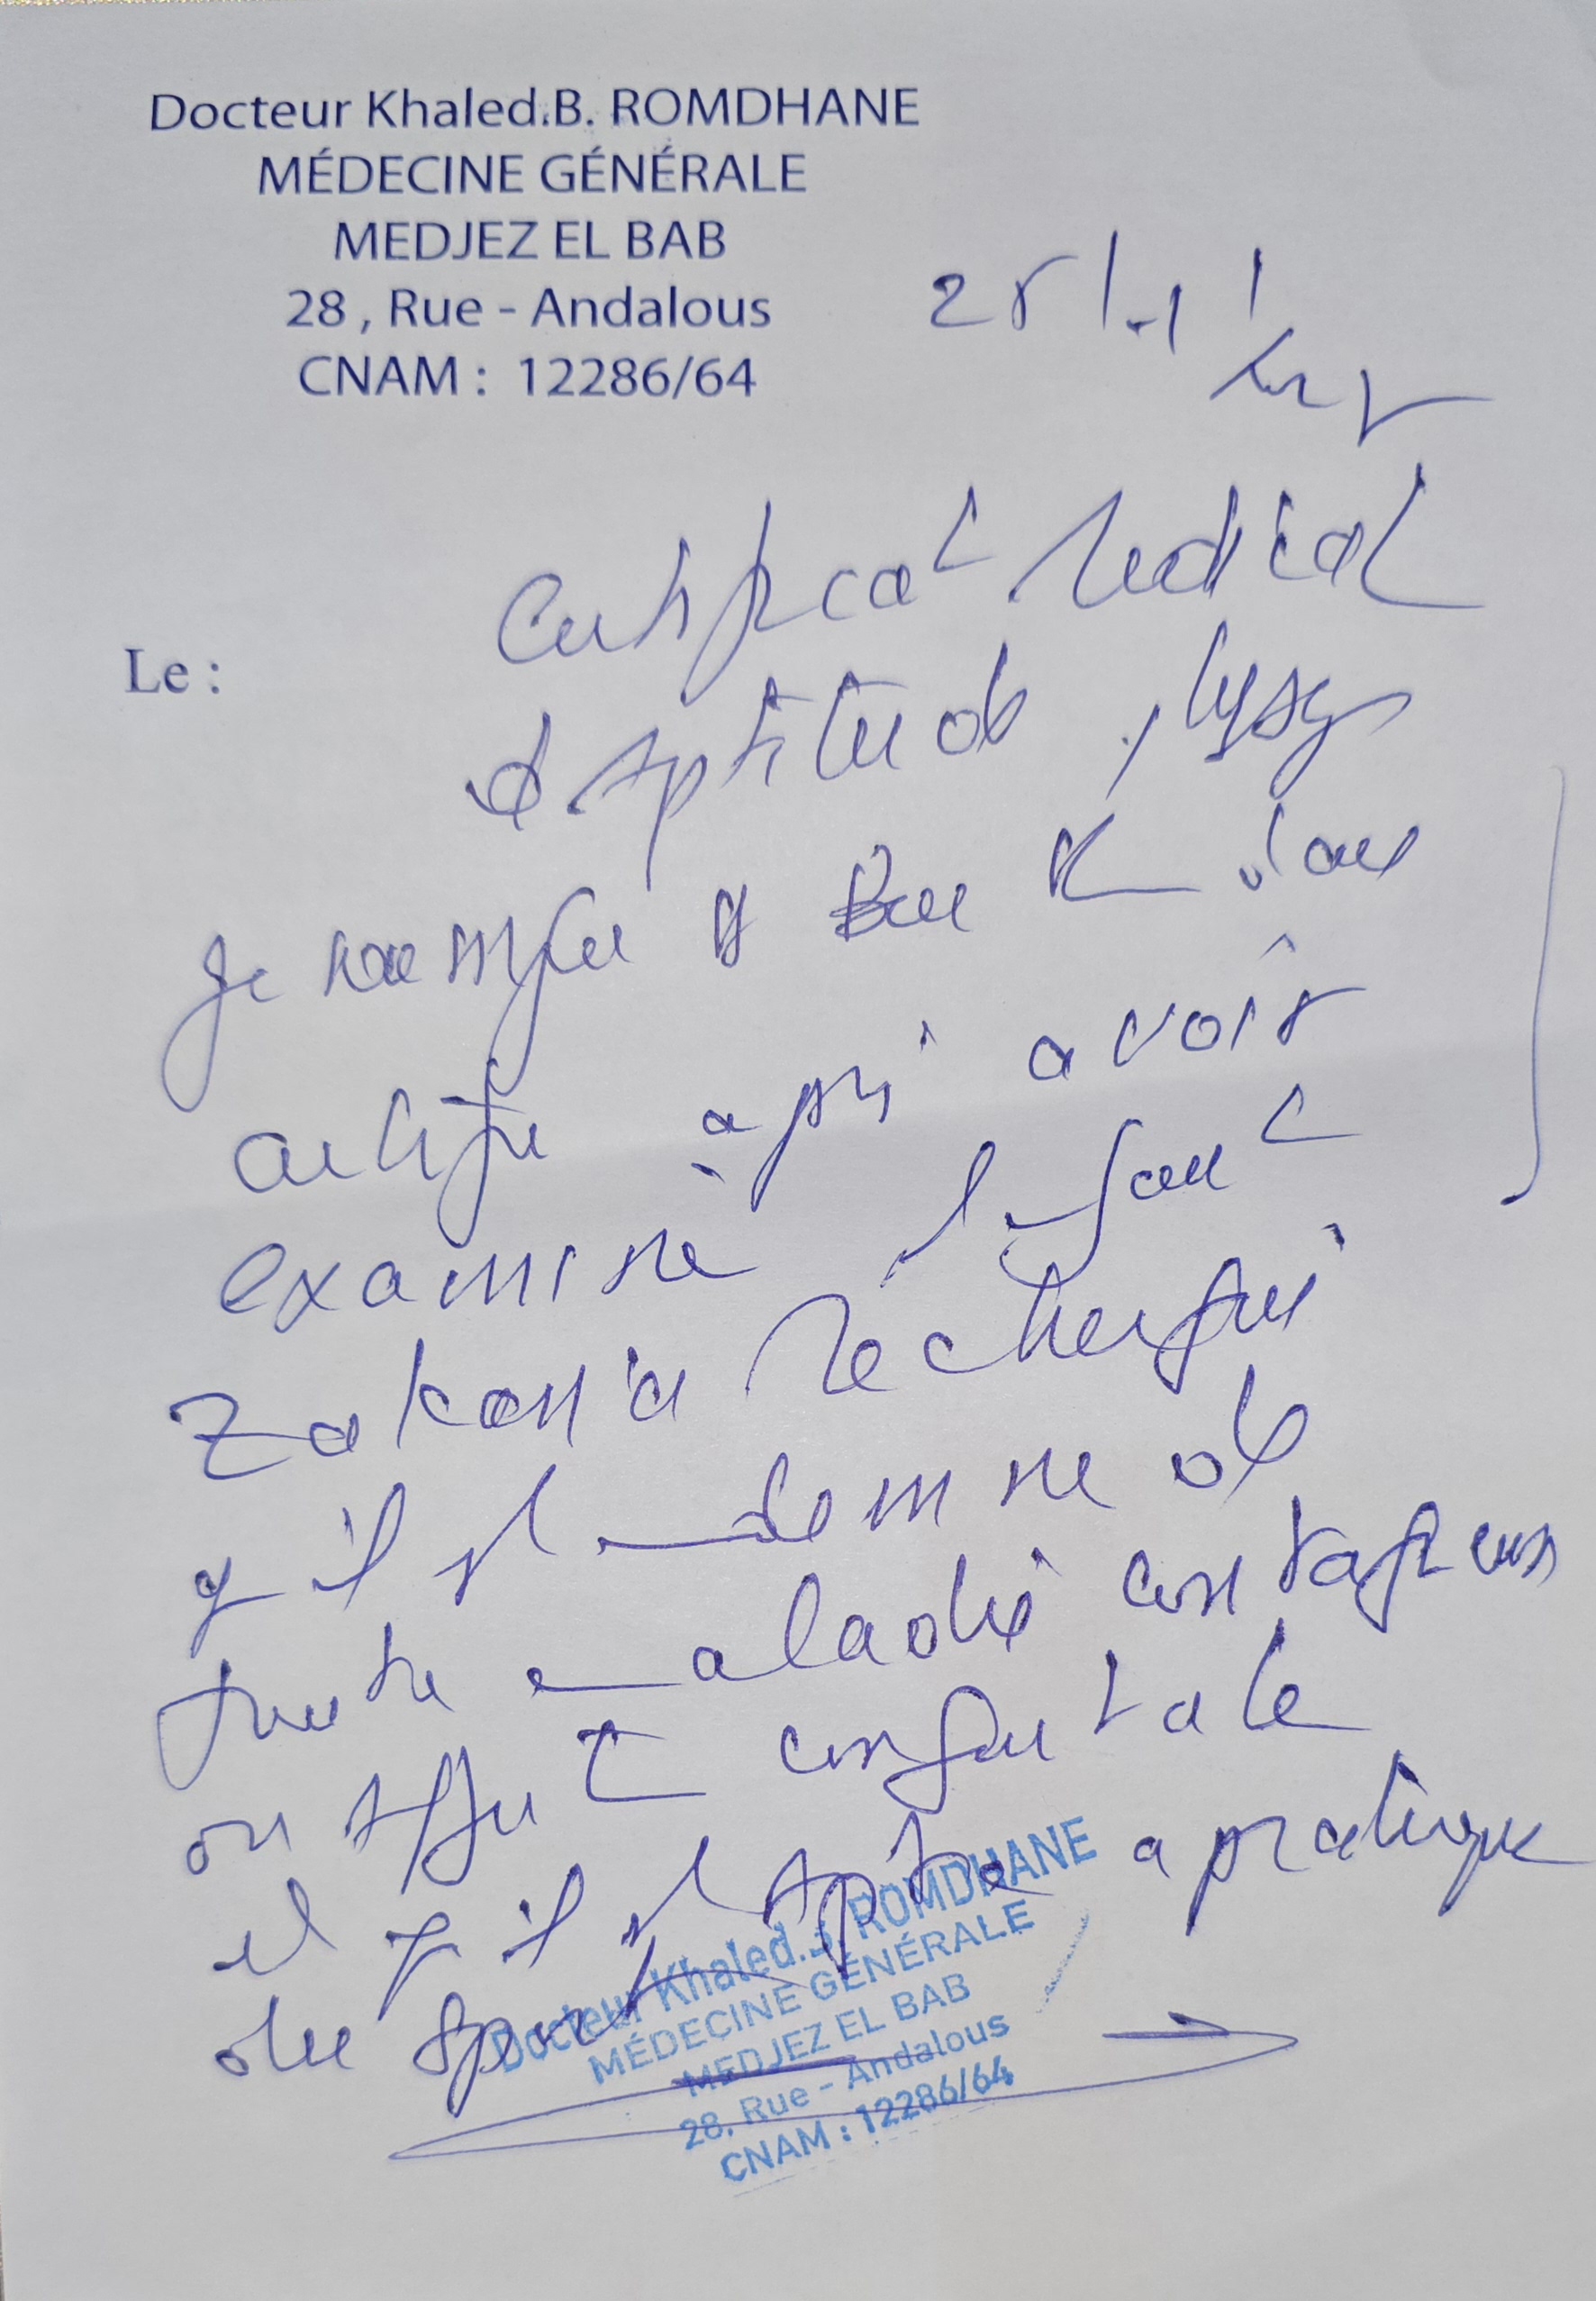 Docteur Khaled.B. ROMDHANE
MÉDECINE GÉNÉRALE
MEDJEZ EL BAB
28 , Rue - Andalous
CNAM : 12286/64
Certificat Medical
Le :
d'Aptitude physique
Je soussigné Dr
certifie après avoir
examiné l'enfant
Zakaria
qu'il est indemne de
toute maladie contagieuse
ou affection congénitale
et qu'il est apte a pratiquer
du sport
Docteur Khaled.B. ROMDHANE
MÉDECINE GÉNÉRALE
MEDJEZ EL BAB
28, Rue - Andalous
CNAM : 12286/64